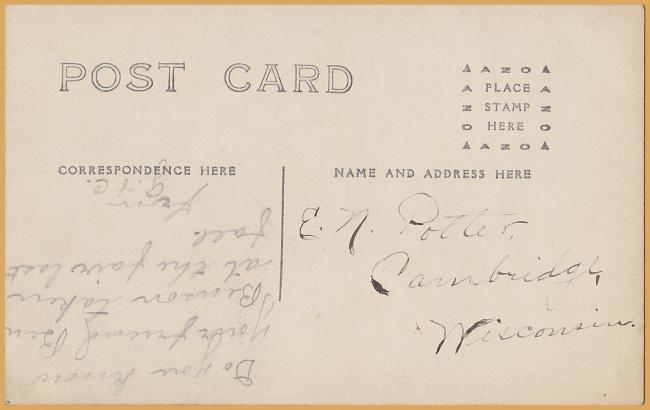 POST CARD
▲ AZO ▲
A PLACE A
Z STAMP Z
O HERE O
▲ AZO ▲
CORRESPONDENCE HERE
NAME AND ADDRESS HERE
E. N. Potter,
Cambridge,
Wisconsin.
Do you know
your friend Ben
Benson taken
at the fair last
fall.
from